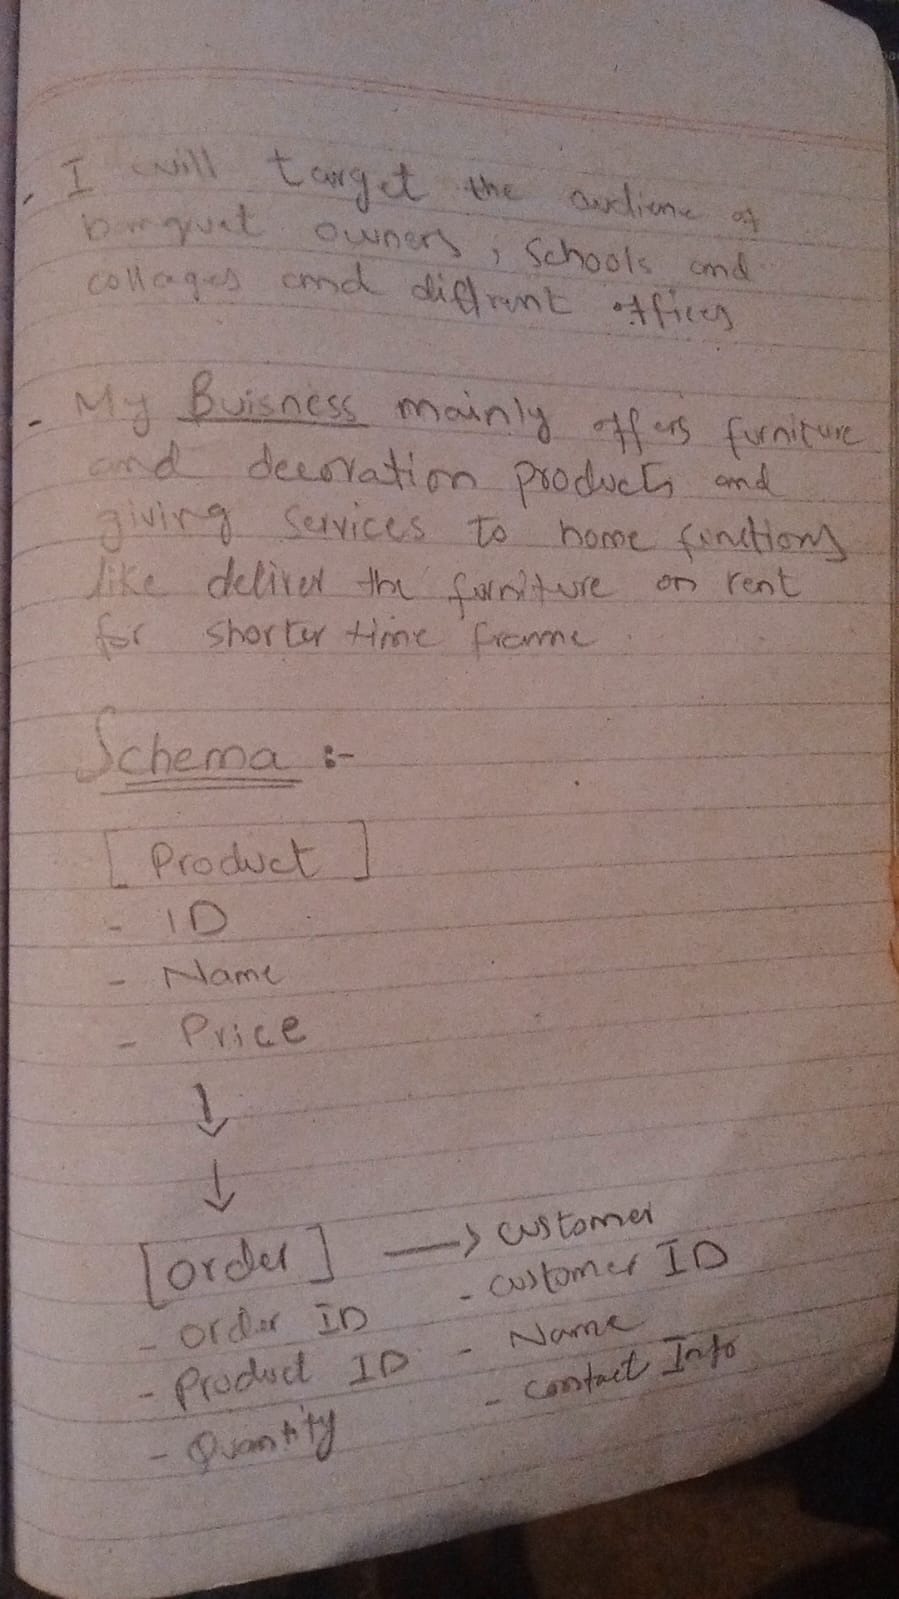 - I will target the audience of
banquet owners, Schools and
collages and diffrent offices
- My Buisness mainly offers furniture
and decoration products and
giving services to home functions
like deliver the furniture on rent
for shorter time frame
Schema :-
[ Product ]
- ID
- Name
- Price
↓
↓
[Order] → customer
- order ID - customer ID
- Product ID - Name
- Quantity - contact Info